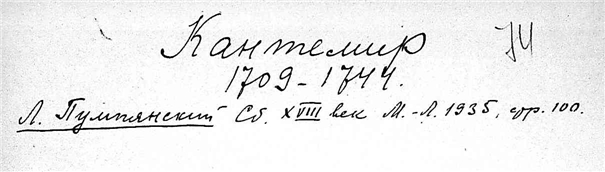 Кантемир
1709-1744.
Л. Пумпянский Сб. XVIII век М.-Л. 1935, стр. 100.